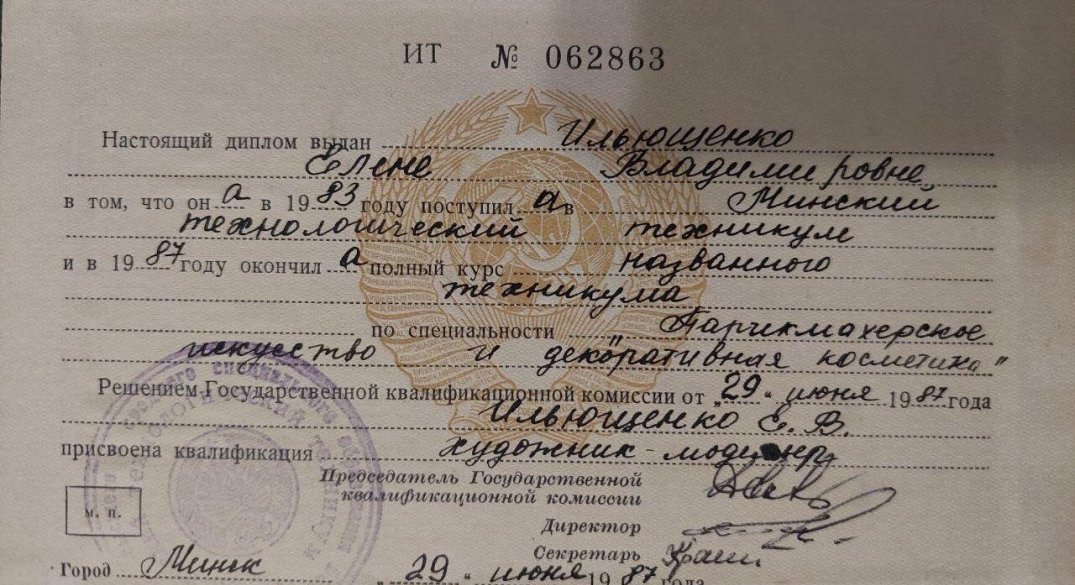 ИТ № 062863
Настоящий диплом выдан Ильющенко
Елене Владимировне
в том, что он а в 1983 году поступил а в Минский
технологический техникум
и в 1987 году окончил а полный курс названного
техникума
по специальности "Парикмахерское
искусство и декоративная косметика"
Решением Государственной квалификационной комиссии от "29" июня 1987 года
Ильющенко Е. В.
присвоена квалификация художник-модельер
Председатель Государственной
квалификационной комиссии
м. п.
Директор
Секретарь
Город Минск "29" июня 1987 года